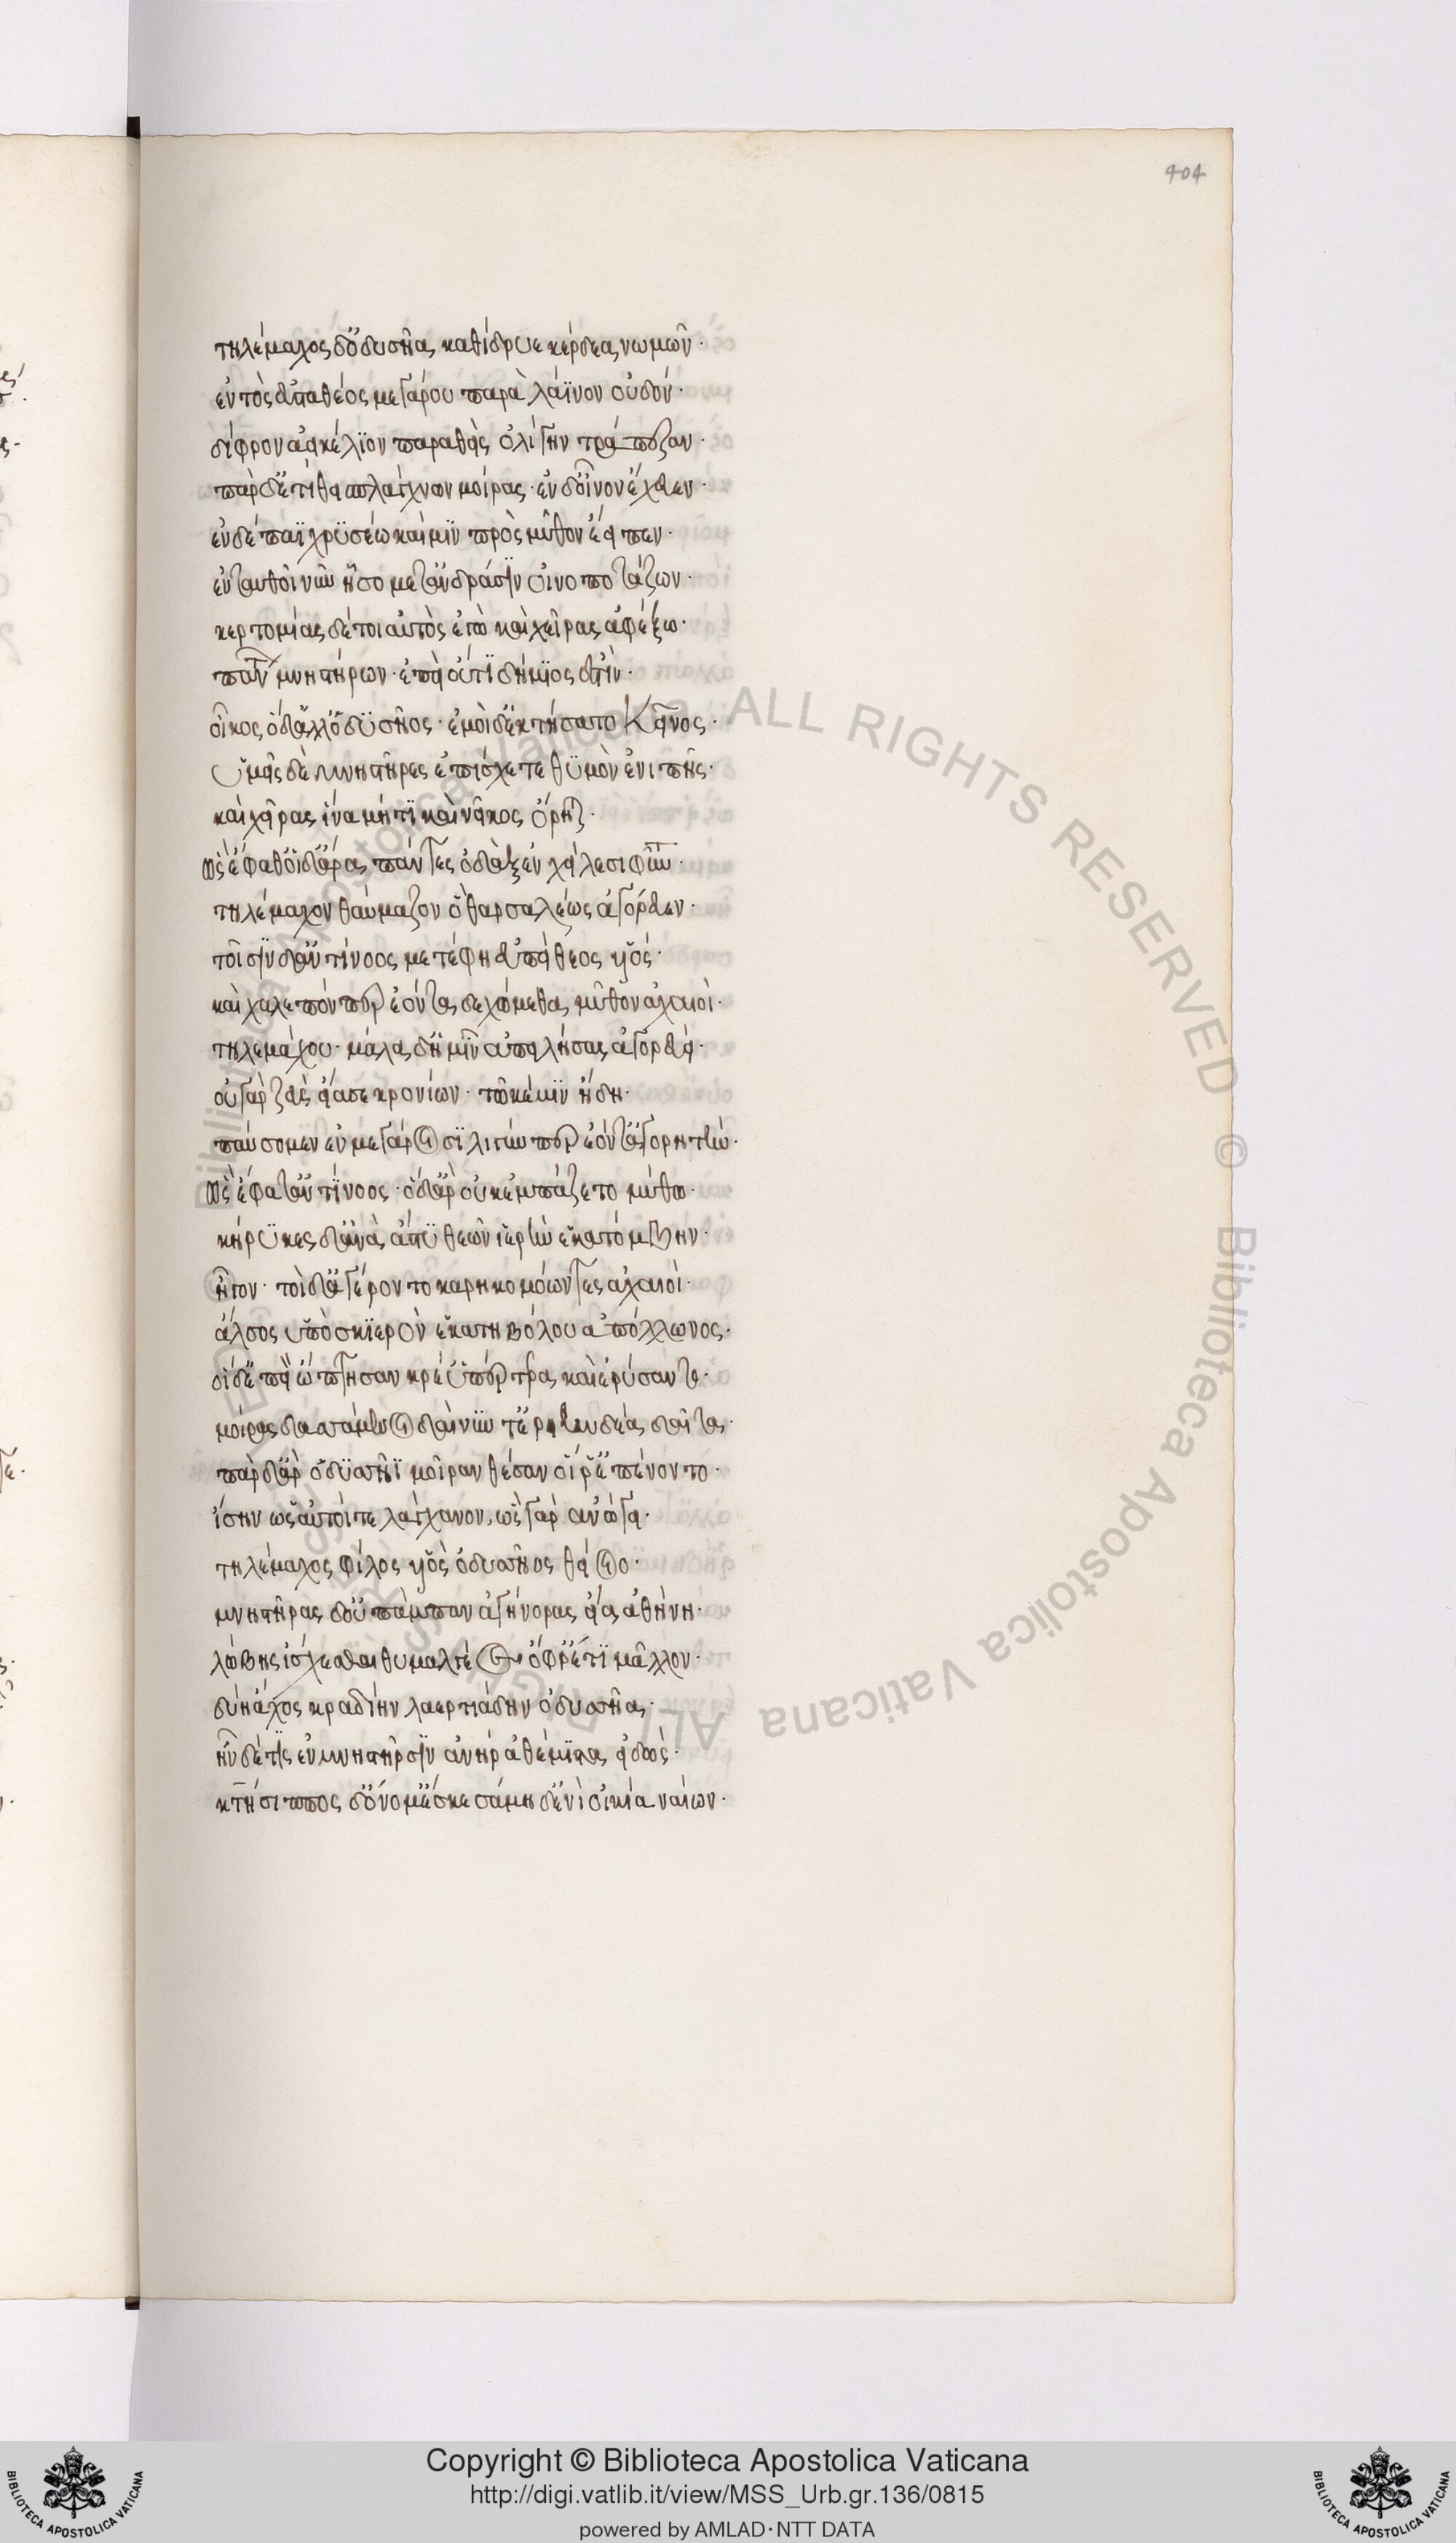 404
τηλέμαχος δ' ὀδυσῆα καθίδρυε κέρδεα νωμῶν·
ἐντὸς ἐϋσταθέος μεγάρου παρὰ λάϊνον οὐδόν·
δίφρον ἀεικέλιον παραθεὶς ὀλίγην τράπεζαν·
πὰρ δ' ἐτίθει σπλάγχνων μοίρας· ἐν δ' οἶνον ἔχευεν·
ἐν δέπαϊ χρυσέω καί μιν πρὸς μῦθον ἔειπεν·
ἐνταυθοῖ νῦν ἧσο μετ' ἀνδράσιν οἰνοποτάζων·
κερτομίας δέ τοι αὐτὸς ἐγὼ καὶ χεῖρας ἀφέξω·
πάντων μνηστήρων· ἐπεὶ οὔτι δήμιός ἐστιν·
οἶκος ὅδ' ἀλλ' ὀδυσῆος· ἐμοὶ δ' ἐκτήσατο κεῖνος·
ὑμεῖς δὲ μνηστῆρες ἐπίσχετε θυμὸν ἐνιπῆς·
καὶ χεῖρας ἵνα μή τι καὶ νεῖκος ὄρηται·
ὣς ἔφαθ' οἱ δ' ἄρα πάντες ὀδὰξ ἐν χείλεσι φῦντες·
τηλέμαχον θαύμαζον ὃ θαρσαλέως ἀγόρευεν·
τοῖσιν δ' ἀντίνοος μετέφη εὐπείθεος υἱός·
καὶ χαλεπόν περ ἐόντα δεχώμεθα μῦθον ἀχαιοὶ·
τηλεμάχου· μάλα δ' ἥμιν ἀπειλήσας ἀγορεύει·
οὐ γὰρ ζεὺς εἴασε κρονίων· τῶ κέ μιν ἤδη·
παύσομεν ἐν μεγάροισι λιγύν περ ἐόντ' ἀγορητήν·
ὣς ἔφατ' ἀντίνοος· ὁ δ' ἄρ' οὐκ ἐμπάζετο μύθων·
κήρυκες δ' ἀνὰ ἄστυ θεῶν ἱερὴν ἑκατόμβην·
ἦγον· τοὶ δ' ἀγέροντο καρηκομόωντες ἀχαιοί·
ἄλσος ὕπο σκιερὸν ἑκατηβόλου ἀπόλλωνος·
οἱ δ' ἐπεὶ ὤπτησαν κρέ' ὑπέρτερα καὶ ἐρύσαντο·
μοίρας δασσάμενοι δαίνυντ' ἐρικυδέα δαῖτα·
πὰρ δ' ἄρ' ὀδυσσῆϊ μοῖραν θέσαν οἵ ῥ' ἐπένοντο·
ἴσην ὡς αὐτοί περ λάγχανον, ὣς γὰρ ἀνώγει·
τηλέμαχος φίλος υἱὸς ὀδυσσῆος θείοιο·
μνηστῆρας δ' οὐ πάμπαν ἀγήνορας εἴα ἀθήνη·
λώβης ἴσχεσθαι θυμαλγέος ὄφρ' ἔτι μᾶλλον·
δύη ἄχος κραδίην λαερτιάδην ὀδυσσῆα·
ἦν δέ τις ἐν μνηστῆρσιν ἀνὴρ ἀθεμίστια εἰδώς·
κτήσιππος δ' ὄνομ' ἔσκε σάμη δ' ἐνὶ οἰκία ναίων·
ALL RIGHTS RESERVED © Biblioteca Apostolica Vaticana
Copyright © Biblioteca Apostolica Vaticana
http://digi.vatlib.it/view/MSS_Urb.gr.136/0815
powered by AMLAD·NTT DATA
BIBLIOTECA APOSTOLICA VATICANA
BIBLIOTECA APOSTOLICA VATICANA